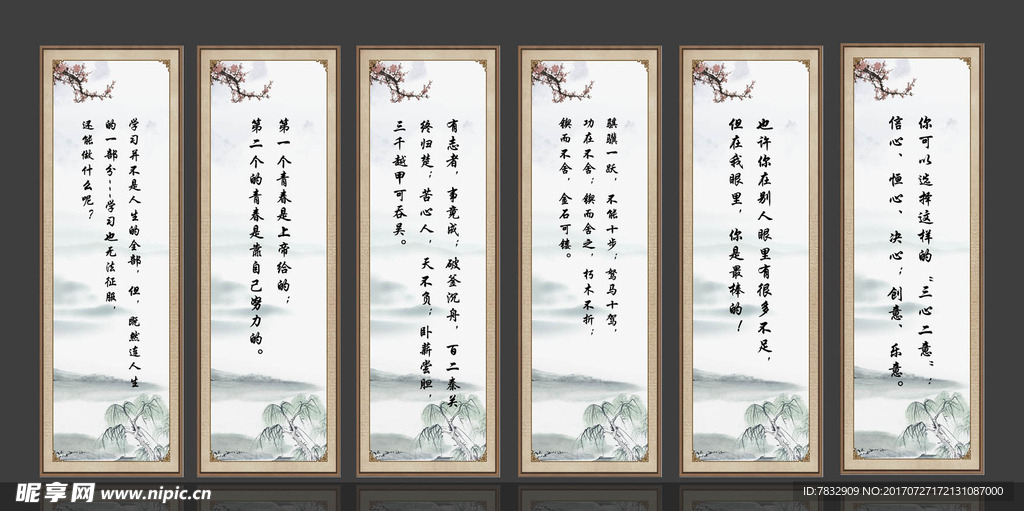 学习并不是人生的全部，但，既然连人生
的一部分---学习也无法征服，
还能做什么呢？
第一个青春是上帝给的；
第二个的青春是靠自己努力的。
有志者，事竟成；破釜沉舟，百二秦关
终归楚；苦心人，天不负；卧薪尝胆，
三千越甲可吞吴。
骐骥一跃，不能十步；驽马十驾，
功在不舍；锲而舍之，朽木不折；
锲而不舍，金石可镂。
也许你在别人眼里有很多不足，
但在我眼里，你是最棒的！
你可以选择这样的“三心二意”：
信心、恒心、决心；创意、乐意。
昵享网 www.nipic.cn
ID:7832909 NO:20170727172131087000